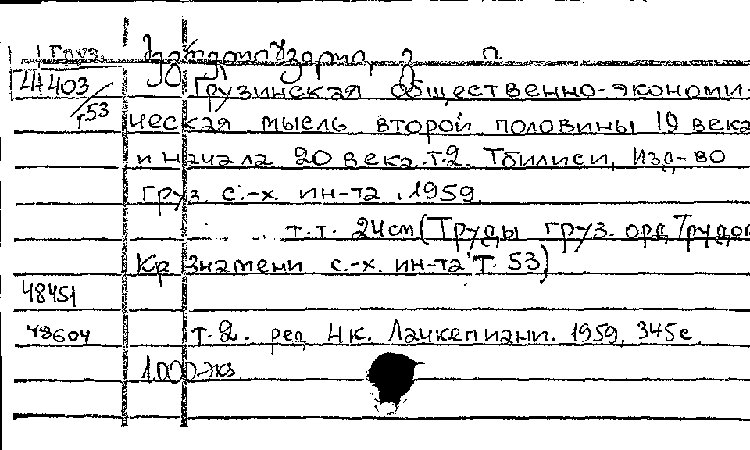 Груз.
44403
т53
Грузинская общественно-экономи-
ческая мысль второй половины 19 века
и начала 20 века. т.2. Тбилиси, Изд-во
Груз. с.-х. ин-та, 1959.
т.т. 24см (Труды груз. орд. Трудов
Кр Знамени с.-х. ин-та Т. 53)
48451
48604 т.2. ред Н.к. 1959, 345с
1.000 экз